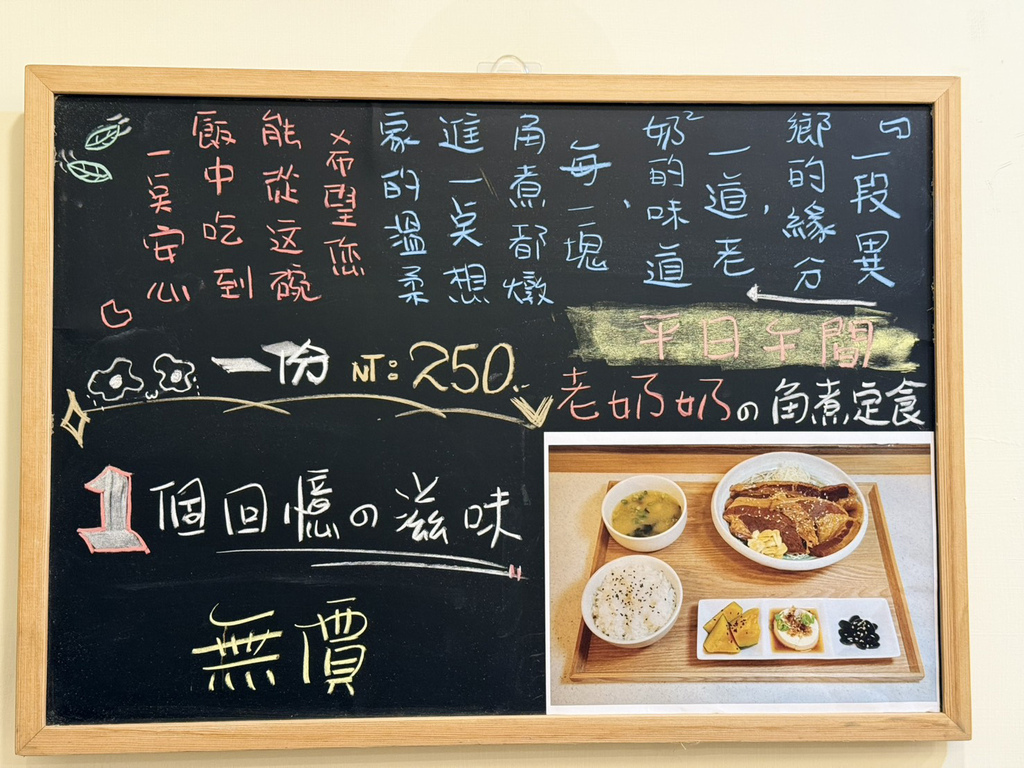 「一段異
鄉的緣分，
一道老
奶²的味道，
每一塊
角煮都燉
進一奌想
家的溫柔
希望您
能從这碗
飯中吃到
一奌安心」
平日午間
老奶奶の角煮定食
一份 NT: 250
1個回憶の滋味
無價